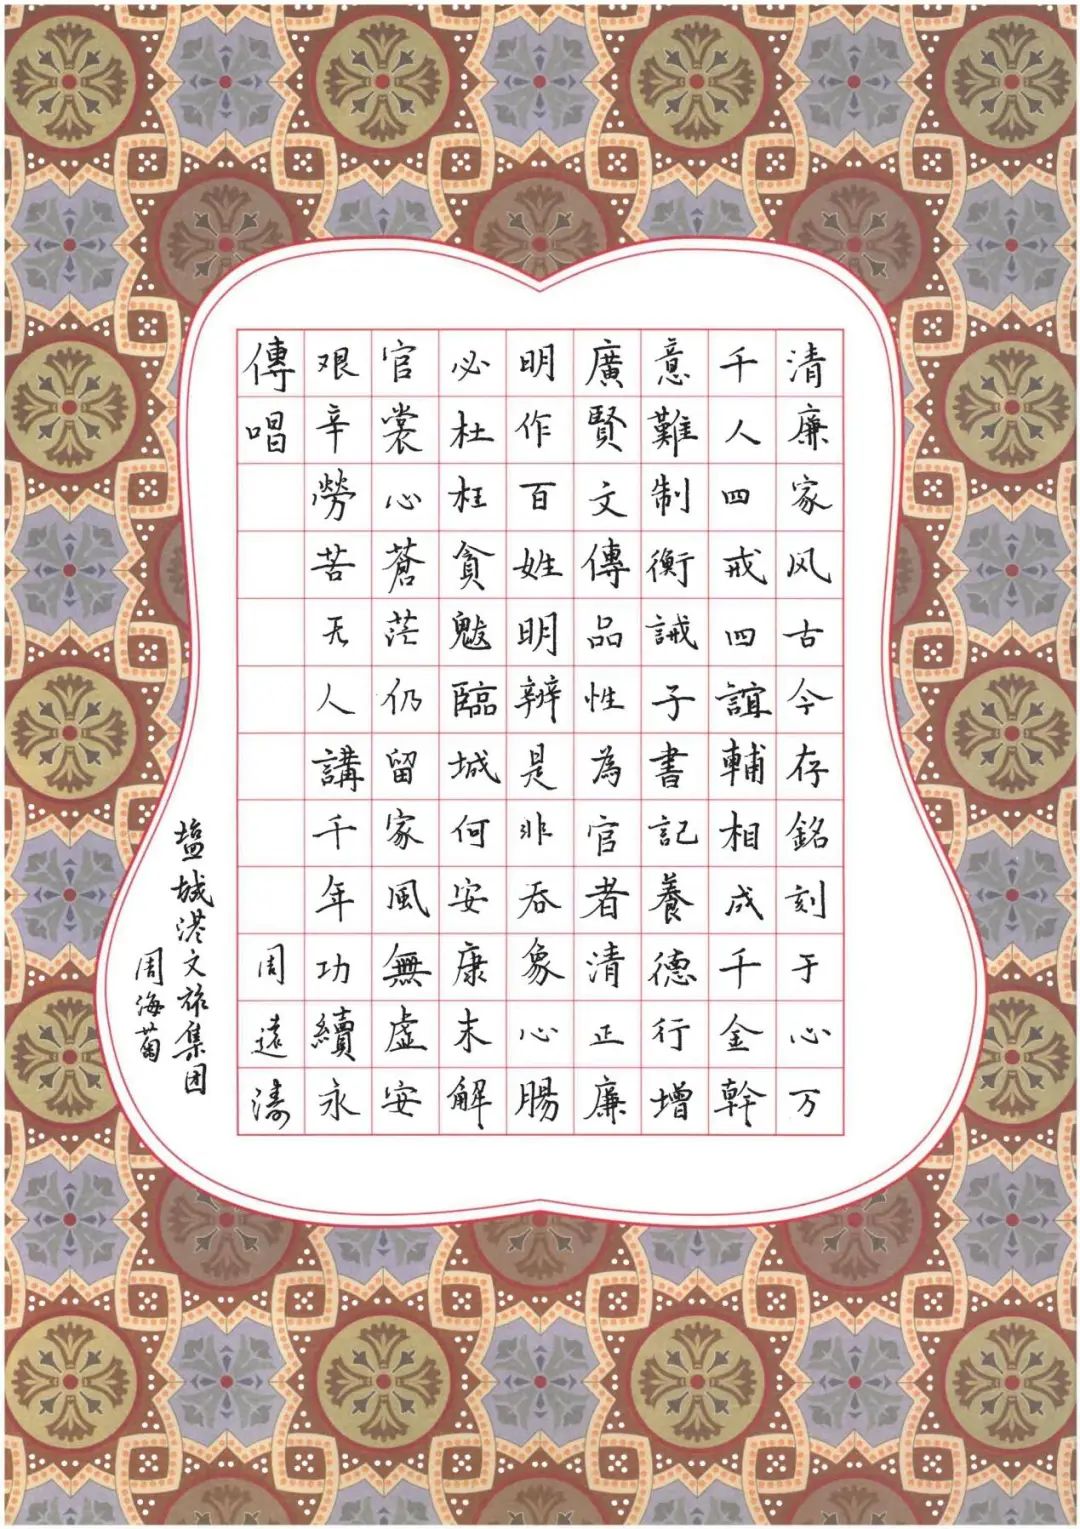 清廉家风古今存銘刻于心万
千人四戒四誼輔相成千金幹
意難制衡誡子書記養德行增
廣賢文傳品性為官者清正廉
明作百姓明辨是非吞象心腸
必杜枉貪魃臨城何安康未解
官裳心蒼茫仍留家風無虚安
艰辛勞苦无人講千年功續永
傳唱
周遠濤
塩城港文旅集团
周海菊